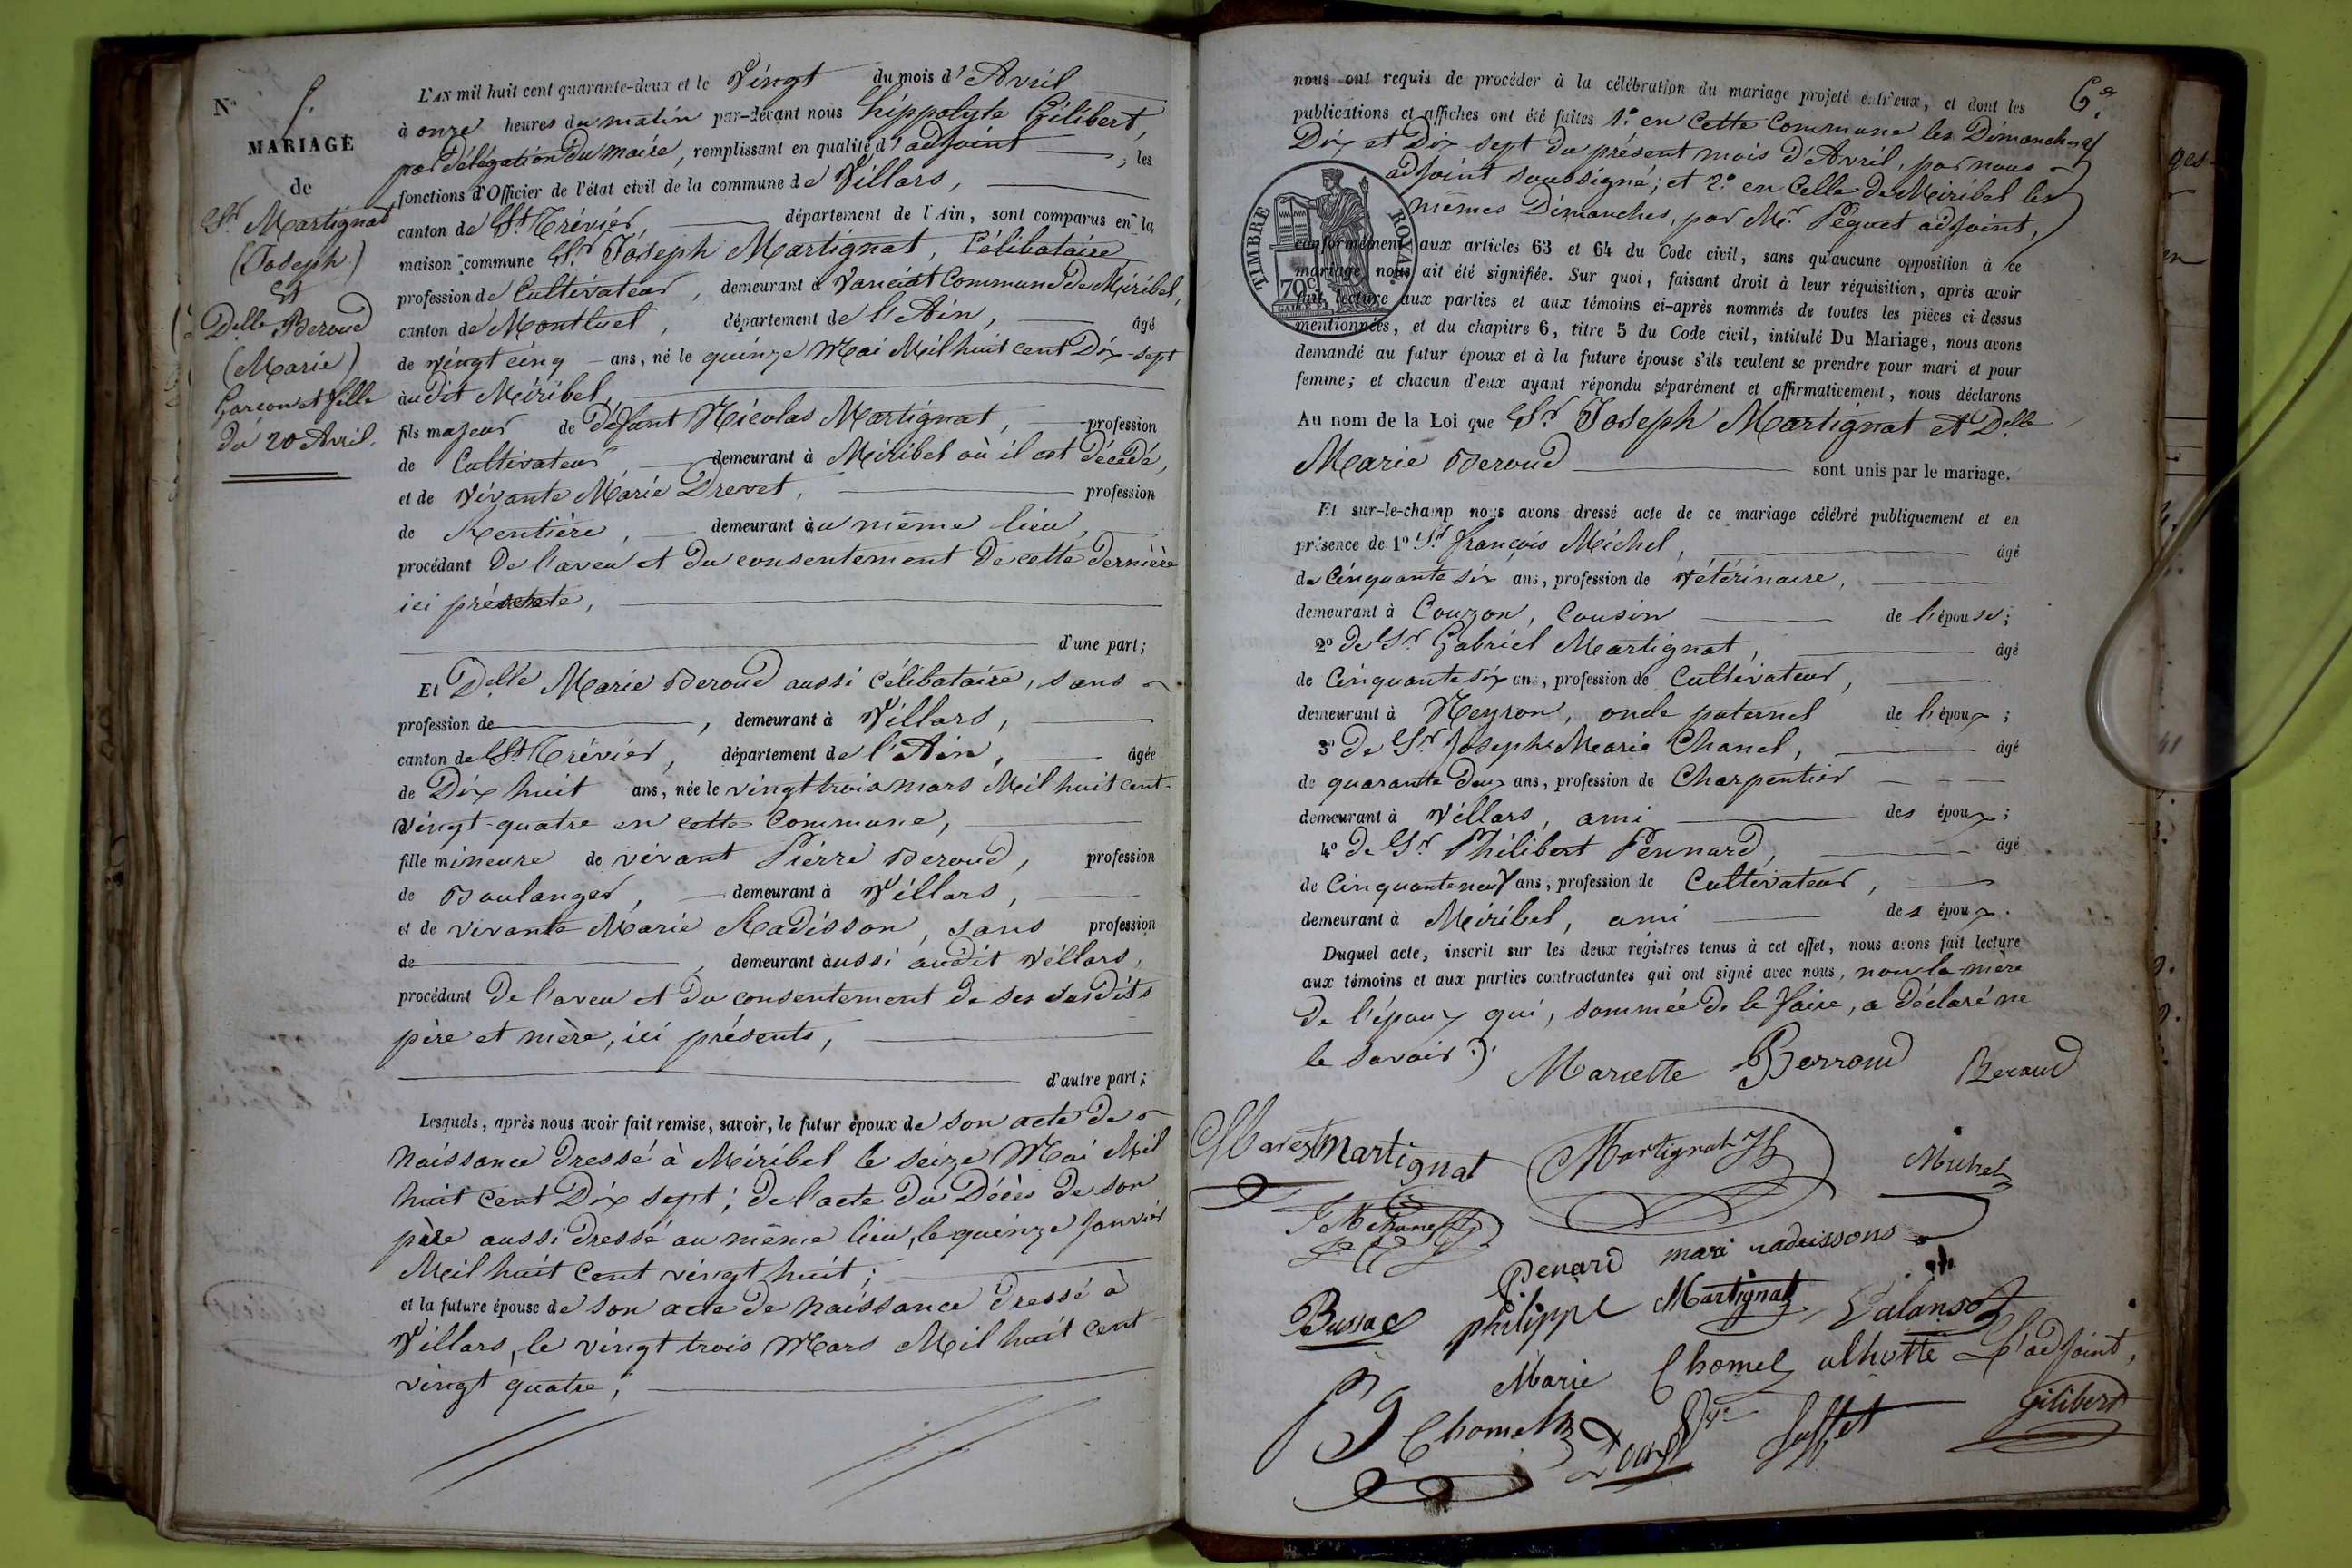 N° 5.
MARIAGE
de
Sr. Martignat
(Joseph)
Et
Delle Beroud
(Marie)
Garçon et fille
du 20 Avril.
L'AN mil huit cent quarante-deux et le Vingt du mois d'Avril
à onze heures du matin par-devant nous hippolyte Gilibert,
par délégation du maire, remplissant en qualité d'adjoint, les
fonctions d'Officier de l'état civil de la commune de Villars,
canton de St. Trévier département de l'Ain, sont comparus en la
maison commune Sr. Joseph Martignat, Célibataire,
profession de Cultivateur, demeurant à Vanciat Commune de Miribel,
canton de Montluel, département de l'Ain, âgé
de vingt cinq ans, né le quinze Mai Mil huit cent Dix-sept
audit Miribel,
fils majeur de défunt Nicolas Martignat, profession
de Cultivateur, demeurant à Miribel où il est décédé,
et de vivante Marie Drevet, profession
de Rentière, demeurant au même lieu,
procédant De l'aveu et du consentement de cette dernière
ici présente,
d'une part;
Et Delle Marie Beroud aussi célibataire, sans
profession de , demeurant à Villars,
canton de St. Trévier, département de l'Ain, âgée
de Dix huit ans, née le vingt trois mars Mil huit cent-
vingt-quatre en cette Commune,
fille mineure de vivant Pierre Beroud, profession
de Boulanger, demeurant à Villars,
et de vivante Marie Radisson, sans profession
de , demeurant aussi audit Villars,
procédant De l'aveu et du consentement de ses susdits
père et mère, ici présents,
d'autre part;
Lesquels, après nous avoir fait remise, savoir, le futur époux de son acte de
Naissance dressé à Miribel le seize Mai Mil
huit cent Dix sept; de l'acte du Décès de son
père aussi dressé au même lieu, le quinze Janvier
Mil huit cent vingt huit;
et la future épouse de son acte de naissance dressé à
Villars, le vingt trois Mars Mil huit cent-
vingt quatre;
6e.
nous ont requis de procéder à la célébration du mariage projeté entr'eux, et dont les
publications et affiches ont été faites 1.° en Cette Commune les Dimanches
Dix et Dix sept du présent mois d'Avril, par nous
adjoint soussigné; et 2.° en Celle de Miribel les
mêmes Dimanches, par Mr. Péquet adjoint,
TIMBRE ROYAL
70c
conformément aux articles 63 et 64 du Code civil, sans qu'aucune opposition à ce
mariage nous ait été signifiée. Sur quoi, faisant droit à leur réquisition, après avoir
fait lecture aux parties et aux témoins ci-après nommés de toutes les pièces ci-dessus
mentionnées, et du chapitre 6, titre 5 du Code civil, intitulé Du Mariage, nous avons
demandé au futur époux et à la future épouse s'ils veulent se prendre pour mari et pour
femme; et chacun d'eux ayant répondu séparément et affirmativement, nous déclarons
Au nom de la Loi que Sr. Joseph Martignat et Delle
Marie Beroud sont unis par le mariage.
Et sur-le-champ nous avons dressé acte de ce mariage célébré publiquement et en
présence de 1° Sr. françois Michel, âgé
de Cinquante six ans, profession de vétérinaire,
demeurant à Couzon, Cousin de l'épouse;
2° de Sr. Gabriel Martignat, âgé
de Cinquante six ans, profession de Cultivateur,
demeurant à Neyron, oncle paternel de l'époux;
3° de Sr. Joseph Marie Chanel, âgé
de quarante deux ans, profession de Charpentier
demeurant à Villars, ami des époux;
4° de Sr. Philibert Pennard, âgé
de Cinquante neuf ans, profession de Cultivateur,
demeurant à Miribel, ami des époux.
Duquel acte, inscrit sur les deux régistres tenus à cet effet, nous avons fait lecture
aux témoins et aux parties contractantes qui ont signé avec nous, non la mère
de l'époux qui, sommée de le faire, a déclaré ne
le savoir.
Mariette Berroud Beroud
Martignat Martignat Michel
J M Chanel
Penard mari radissons
Bussac philippe Martignat
Marie Chomel L'adjoint,
Chomel Gilibert